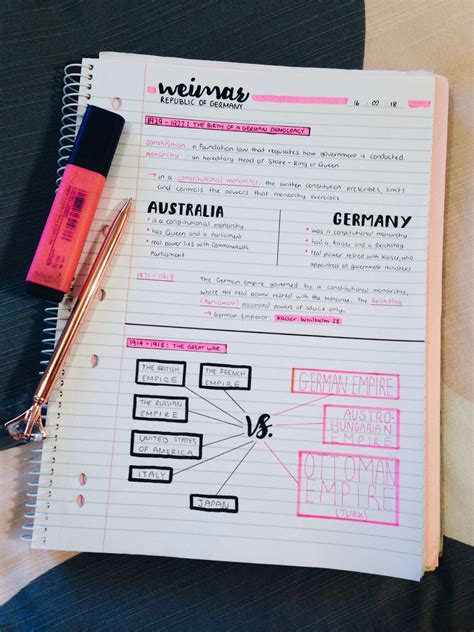 weimar
REPUBLIC OF GERMANY
16 / 02 / 18
THE BIRTH OF A GERMAN DEMOCRACY
constitution a foundation law that regulates how government is conducted.
monarchy an hereditary Head of State - King or Queen
→ in a constitutional monarchy, the written constitution prescribes, limits
and controls the powers that monarchy exercises
AUSTRALIA
• is a constitutional monarchy
• has Queen and a Parliament
• real power lies with Commonwealth
Parliament
GERMANY
• was a constitutional monarchy
• had a Kaiser and a Reichstag
• real power rested with Kaiser, who
appointed all government ministers
1871 - 1918
The German Empire governed by a constitutional monarchs,
where the real power rested with the Monarchs. The Reichstag
(Parliament) possessed powers of advice only.
→ German Emperor: Kaiser Wilhelm II
1914 - 1918: THE GREAT WAR
THE BRITISH
EMPIRE
THE FRENCH
EMPIRE
THE RUSSIAN
EMPIRE
UNITED STATES
OF AMERICA
ITALY
JAPAN
VS.
GERMAN EMPIRE
AUSTRO-
HUNGARIAN
EMPIRE
OTTOMAN
EMPIRE
(TURK)